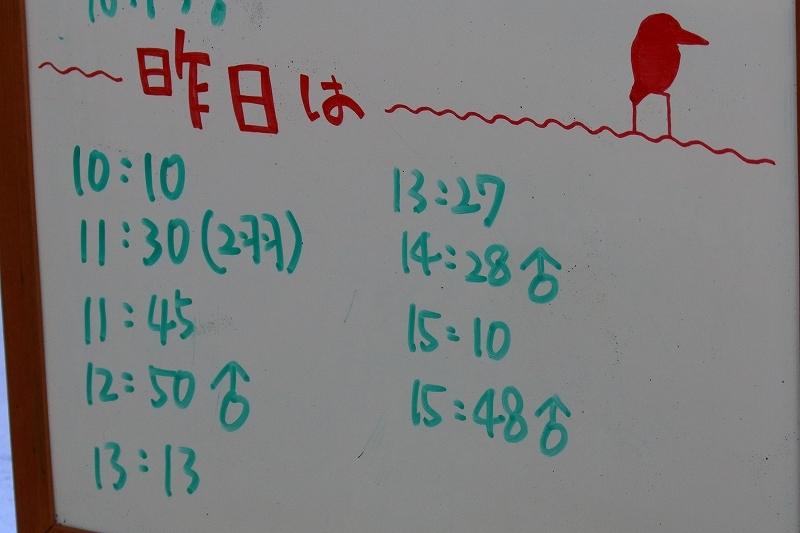 昨日は
10:10
11:30(2羽)
11:45
12:50♂
13:13
13:27
14:28♂
15:10
15:48♂